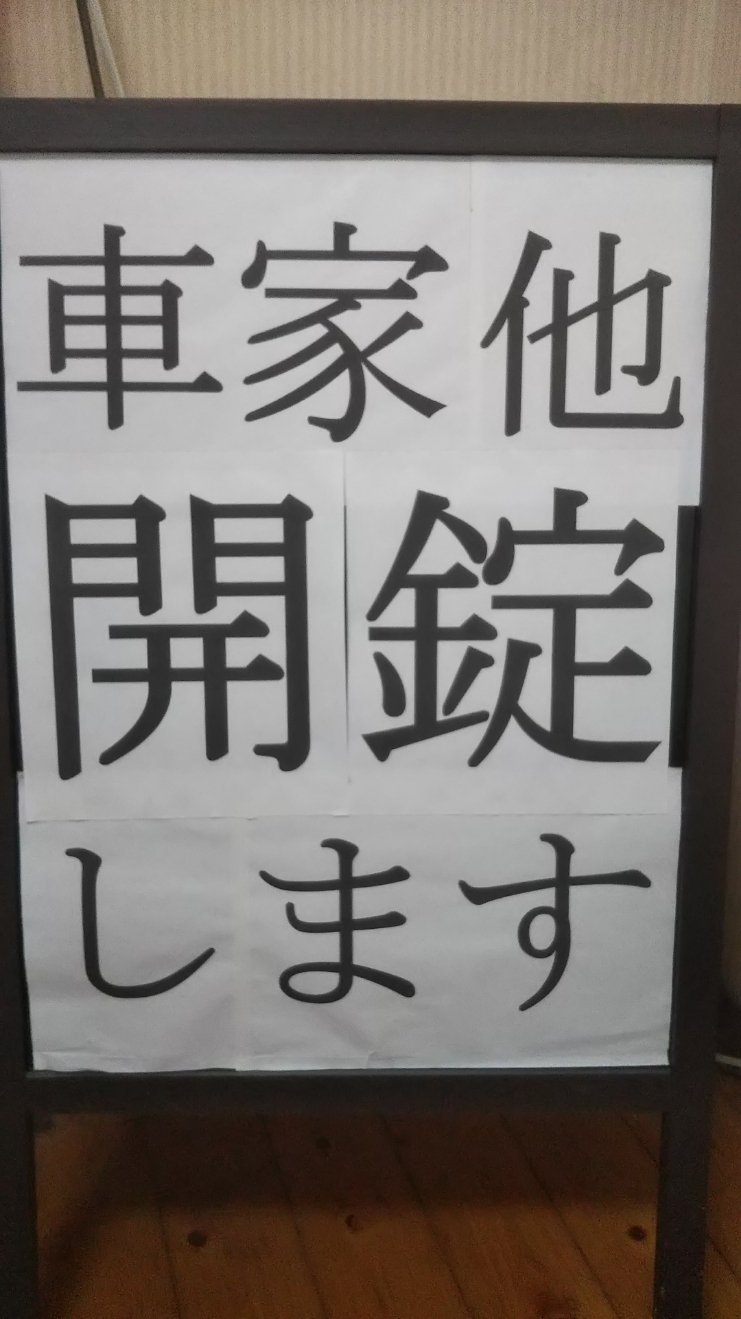 車家他
開錠
します